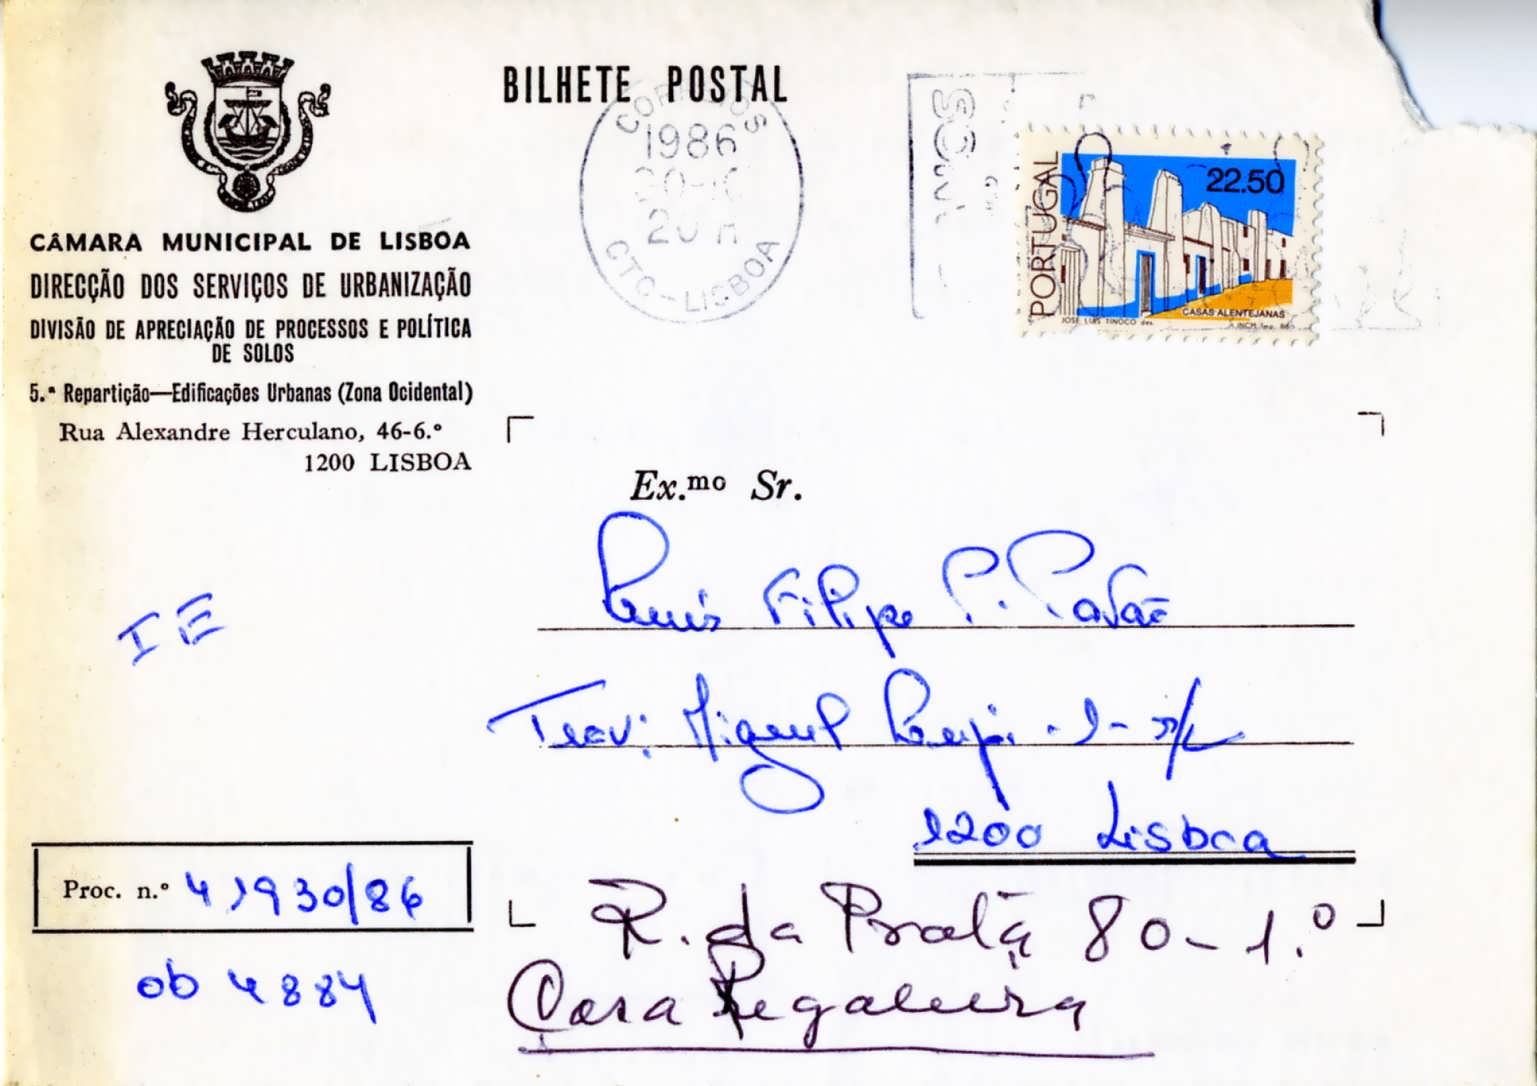 BILHETE POSTAL
CORREIOS
1986
CTC - LISBOA
PORTUGAL
22.50
CASAS ALENTEJANAS
JOSÉ LUIS TINOCO des.
INCM Imp. 86
CÂMARA MUNICIPAL DE LISBOA
DIRECÇÃO DOS SERVIÇOS DE URBANIZAÇÃO
DIVISÃO DE APRECIAÇÃO DE PROCESSOS E POLÍTICA
DE SOLOS
5.ª Repartição—Edificações Urbanas (Zona Ocidental)
Rua Alexandre Herculano, 46-6.º
1200 LISBOA
Ex.mo Sr.
Luís Filipe P. Pavão
Trav: Miguel Lupi - 1 - s/L
1200 Lisboa
IE
Proc. n.º 41930/86
ob 4884
R. da Prata 80 - 1.º
Casa Regaleira